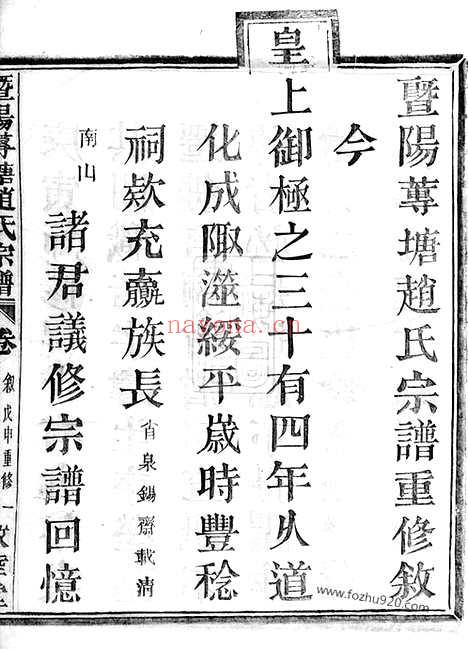 暨陽蓴塘趙氏宗譜重修敘
今
皇上御極之三十有四年久道
化成陬澨綏平歲時豐稔
祠欵充羸族長省泉錫齋載清
南山諸君議修宗譜回憶
暨陽蓴塘趙氏宗譜 卷 敘戊申重修 一
nayona.cn
www.fozhu920.com